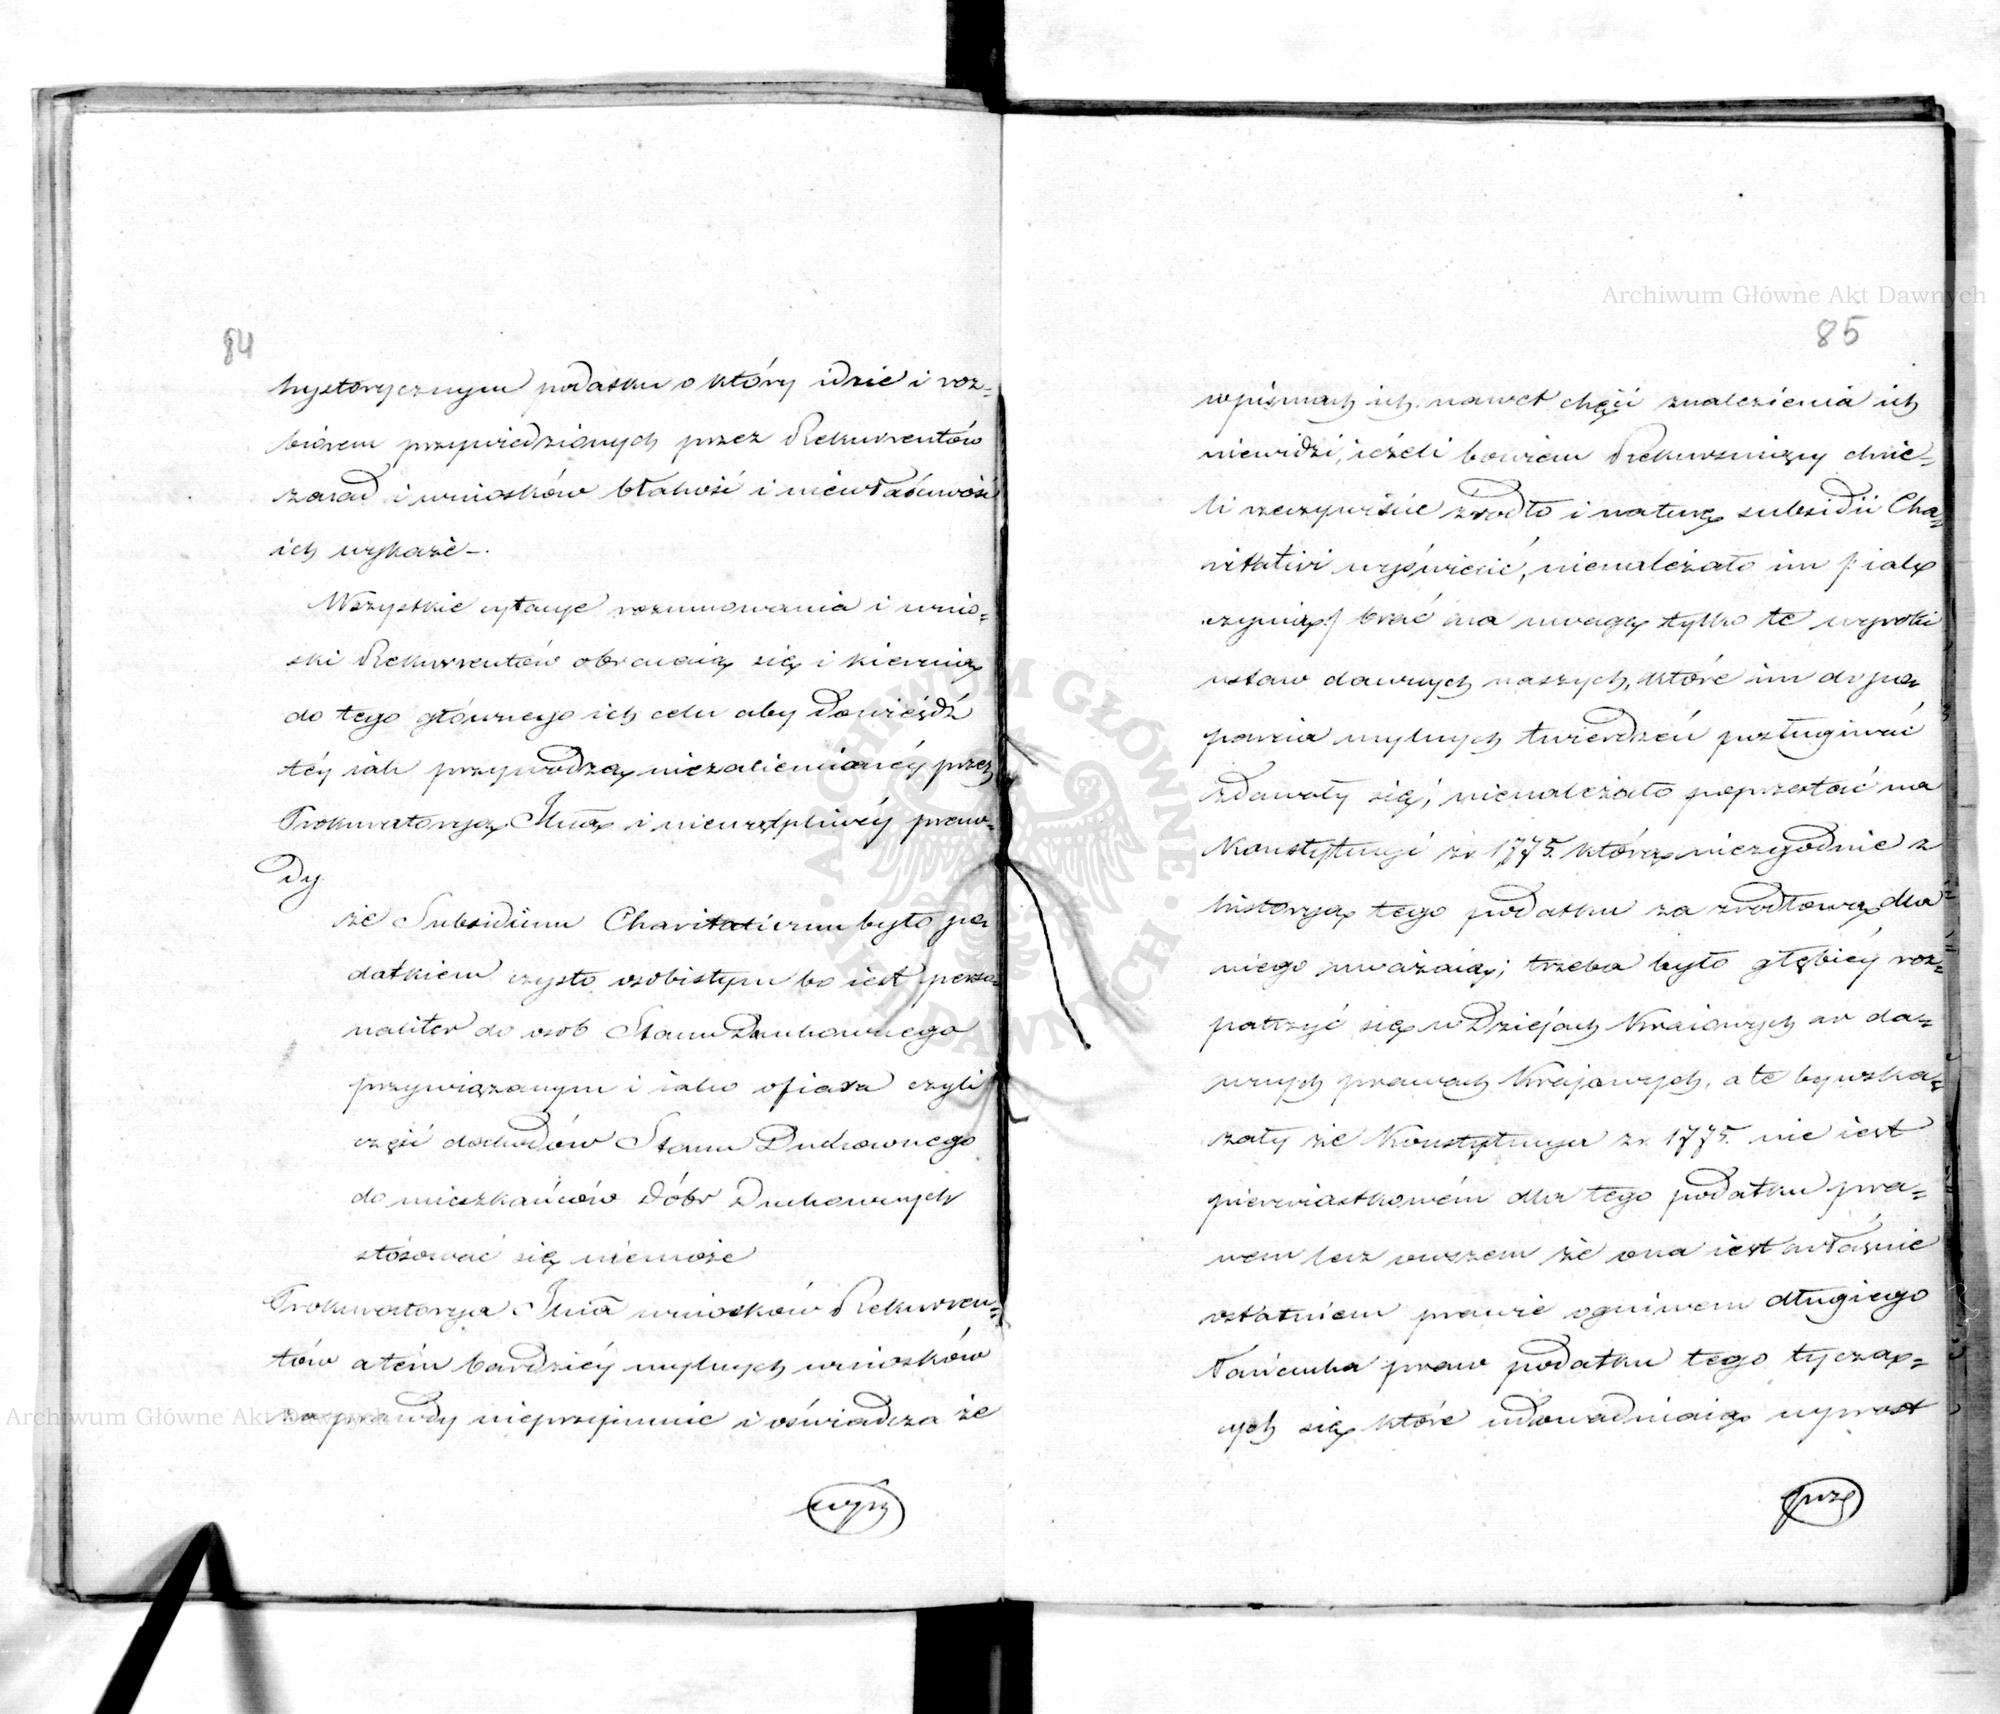 84
hystorycznym podatku o który idzie i roz-
biorem przywiedzionych przez Rekurrentów
zasad i wniosków błahość i niewłaściwość
ich wykaże -.
Wszystkie cytacje rozumowania i wnio-
ski Rekurrentów obracaią się i kieruią
do tego głównego ich celu aby dowieśdź
téy iak przywodzą niezaprzeczonéy przez
Prokuratoryą Jlną i niewątpliwéy praw-
dy
że Subsidium Charitativum było po
datkiem czysto osobistym bo iest perso-
naliter do osób Stanu Duchownego
przywiązanym i iako ofiara czyli
część dochodów Stanu Duchownego
do mieszkańców Dóbr Duchownych
stósować się niemoże
Prokuratorya Jlna wniosków Rekurren-
tów a tém bardziéy mylnych wniosków
za prawdy nieprzyimuie i oświadcza że
w pis
85
w pismach ich nawet chęci znalezienia ich
niewidzi, ieżeli bowiem Rekursuiący chcie-
li rzeczywiście zrodło i naturę subsidii Cha-
ritativi wyświecić, nienależało im /: iak
czynią :/ brać na uwagę tylko te wyroki
ustaw dawnych naszych, które im do po
parcia mylnych twierdzeń posługiwać
zdawały się; nienależało poprzestać na
Konstytucyi z r. 1775. którą niezgodnie z
historyą tego podatku za zrodłową dla
niego uważaią; trzeba było głębiéy roz-
patrzyć się w Dziejach Kraiowych w da-
wnych prawach Krajowych, a te by wska-
zały że Konstytucya z r. 1775. nie iest
pierwiastkowém dla tego podatku pra-
wem lecz owszem że ona iest właśnie
ostatniem prawie ogniwem długiego
łańcucha praw podatku tego tyczą-
cych się które udowadniaią wprost
prze
Archiwum Główne Akt Dawnych
Archiwum Główne Akt Dawnych
ARCHIWUM GŁÓWNE AKT DAWNYCH